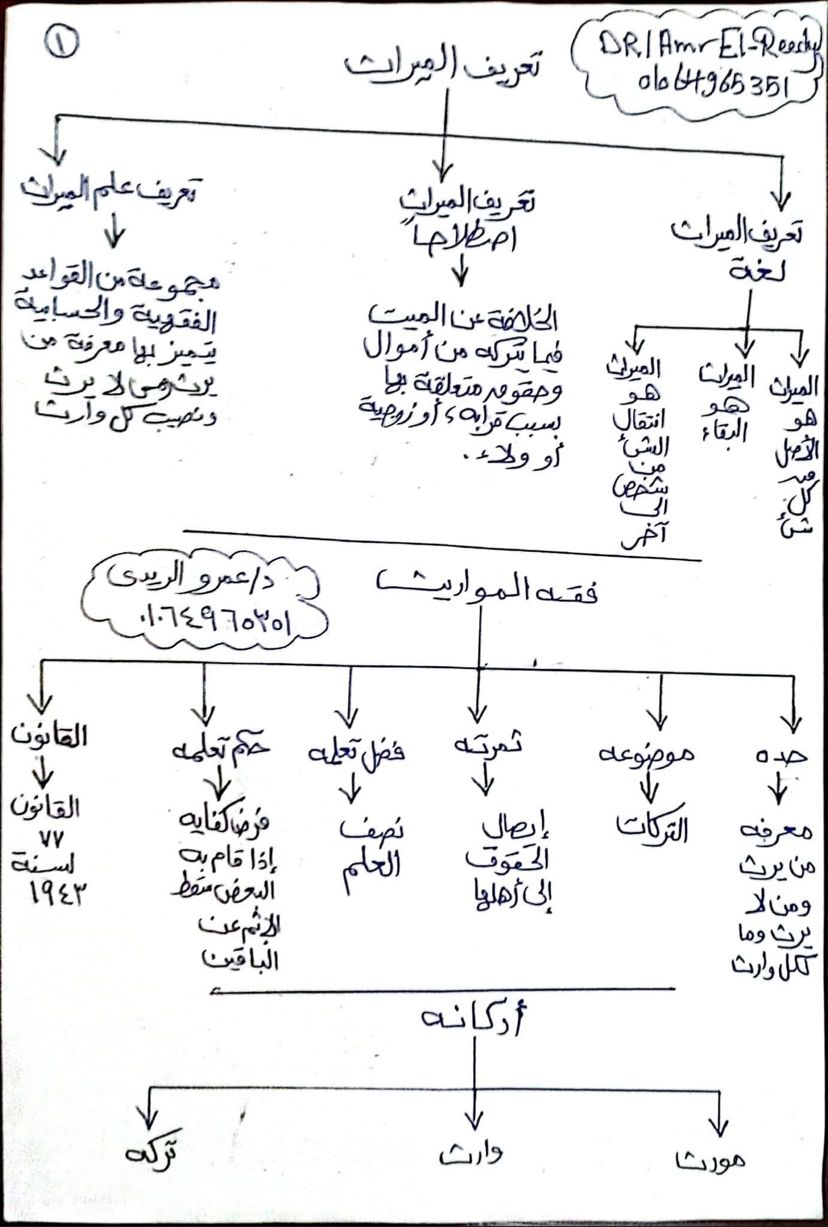 ١
DR/Amr El-Reedy
01064965351
تعريف الميراث
تعريف الميراث
لغة
الميراث
هو
الأصل
من
كل
شئ
الميراث
هو
البقاء
الميراث
هو
انتقال
الشئ
من
شخص
الى
آخر
تعريف الميراث
اصطلاحاً
الخلافة عن الميت
فيما يتركه من أموال
وحقوق متعلقة بها
بسبب قرابه، أو زوجية
أو ولاء.
تعريف علم الميراث
مجموعة من القواعد
الفقهية والحسابية
يتميز بها معرفة من
يرث ومن لا يرث
ونصيب كل وارث
د/عمرو الريدى
٠١٠٦٤٩٦٥٣٥١
فقه المواريث
حده
معرفه
من يرث
ومن لا
يرث وما
لكل وارث
موضوعه
التركات
ثمرته
إيصال
الحقوق
إلى أهلها
فضل تعلمه
نصف
العلم
حكم تعلمه
فرض كفايه
إذا قام به
البعض سقط
الإثم عن
الباقين
القانون
القانون
٧٧
لسنة
١٩٤٣
أركانه
مورث
وارث
تركه